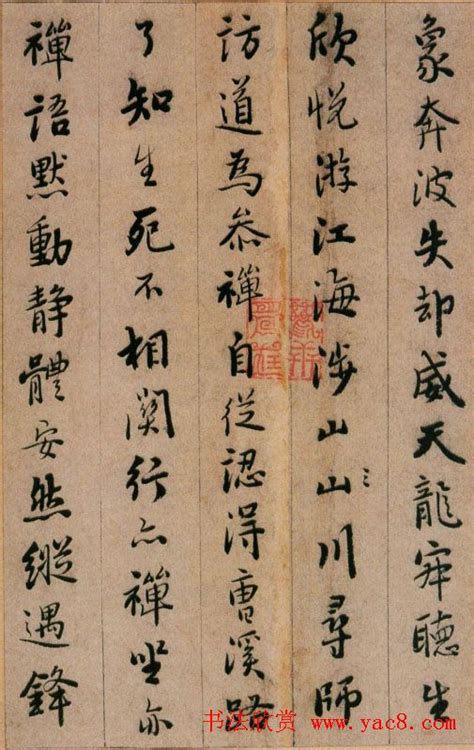 象奔波失却威天龍寂聽生
欣悅游江海涉山山川尋師
訪道為叅禪自從認得曹溪路
了知生死不相關行亦禪坐亦
禪語默動靜體安然縱遇鋒
书法欣赏 www.yac8.com